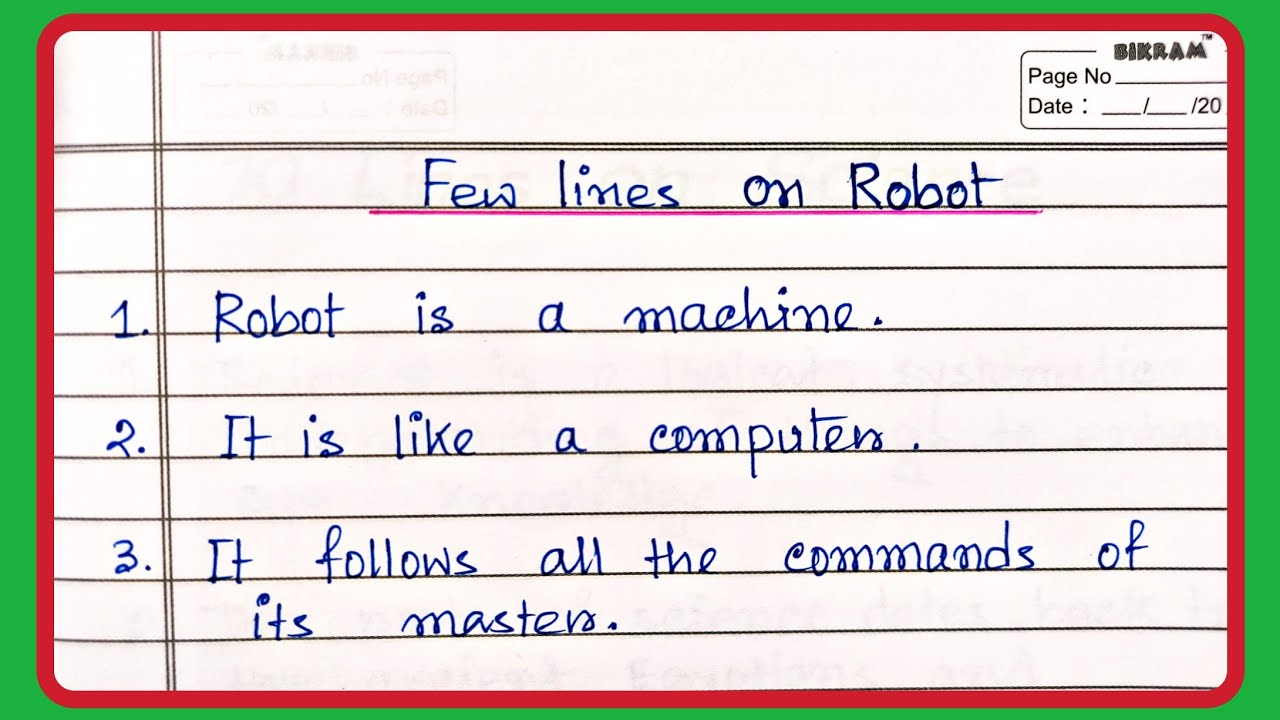 BIKRAM™
Page No
Date : / /20
Few lines on Robot
1. Robot is a machine.
2. It is like a computer.
3. It follows all the commands of
its master.